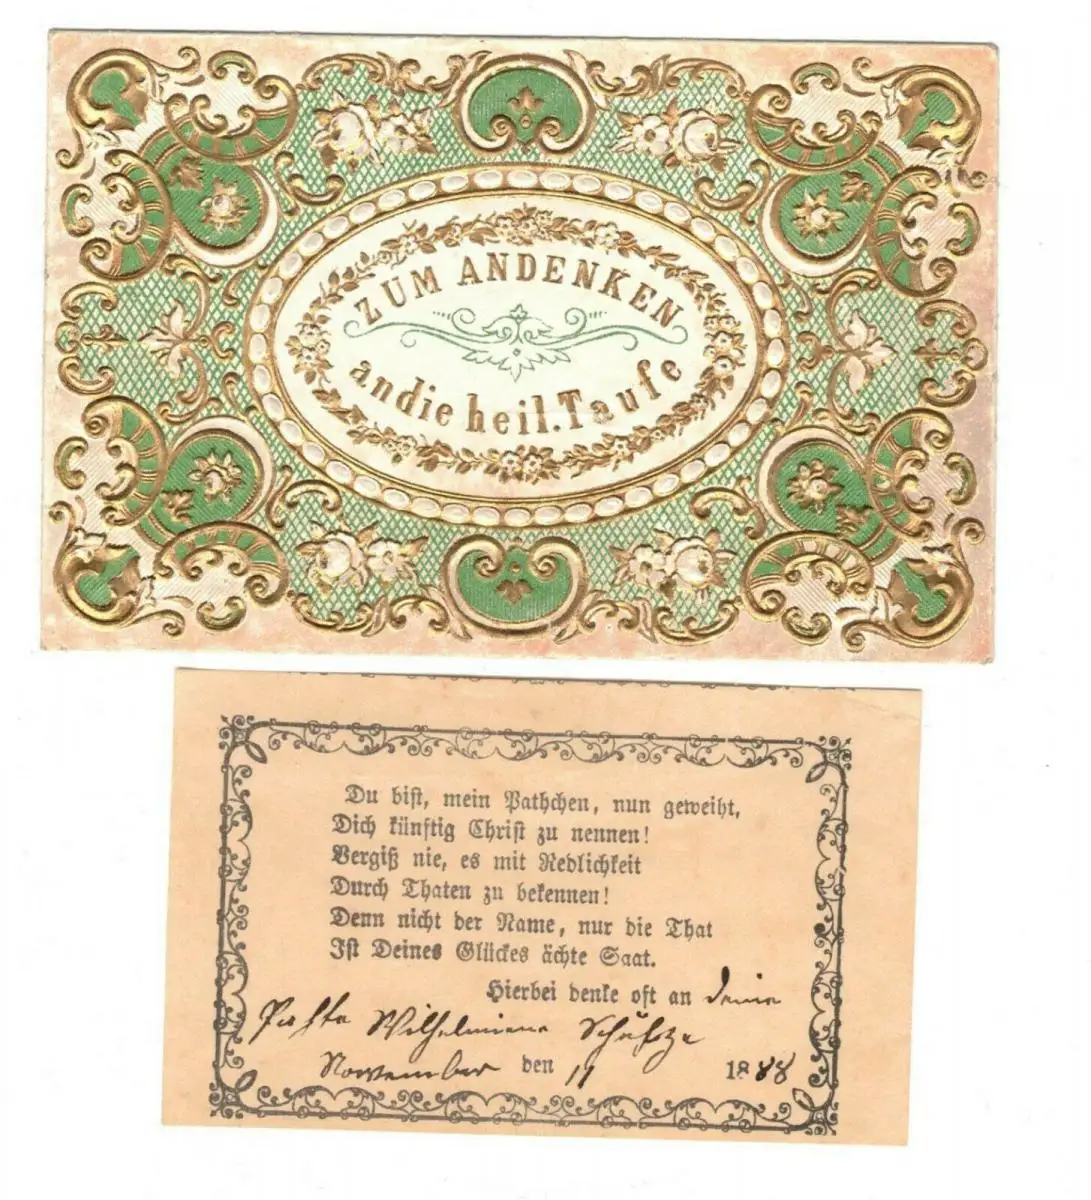 ZUM ANDENKEN
an die heil. Taufe
Du bist, mein Pathchen, nun geweiht,
Dich künftig Christ zu nennen!
Vergiß nie, es mit Redlichkeit
Durch Thaten zu bekennen!
Denn nicht der Name, nur die That
Ist Deines Glückes ächte Saat.
Hierbei denke oft an deine
Pathe Wilhelmiene
November den 11 1888